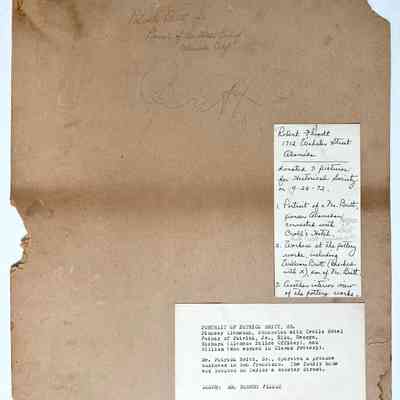 Patrick Britt Sr.
Britt
Robert
1712 Webster Street
Alameda
donated 3 pictures
for Historical Society
on 9-28-72.
1. Portrait of a Mr. Britt,
pioneer Alamedan
connected with
Croll's Hotel.
2. Workers at the pottery
works, including
William Britt (checked
with X) son of Mr. Britt
3. Another interior view
of the pottery works.
PORTRAIT OF PATRICK BRITT, SR.
Pioneer Alamedan, connected with Croll's Hotel
Father of Patrick, Jr., Mike, George,
Richard (Alameda Police Officer), and
William (who worked in Clamda Pottery).
Mr. Patrick Britt, Sr., operated a produce
business in San Francisco. The family home
was located on Taylor &  Webster Street.
DONOR: MR. ROBERT